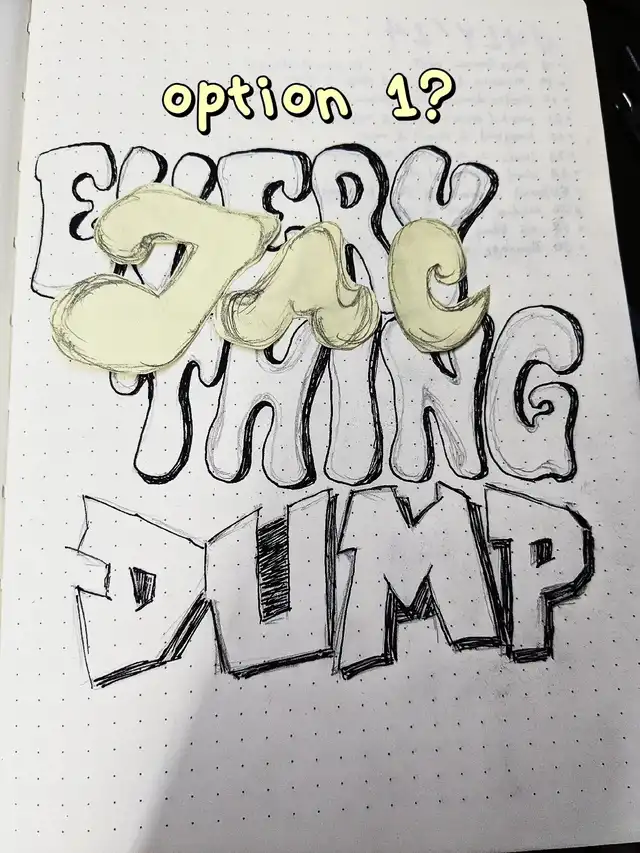 option 1?
EVERY
Jac
THING
DUMP